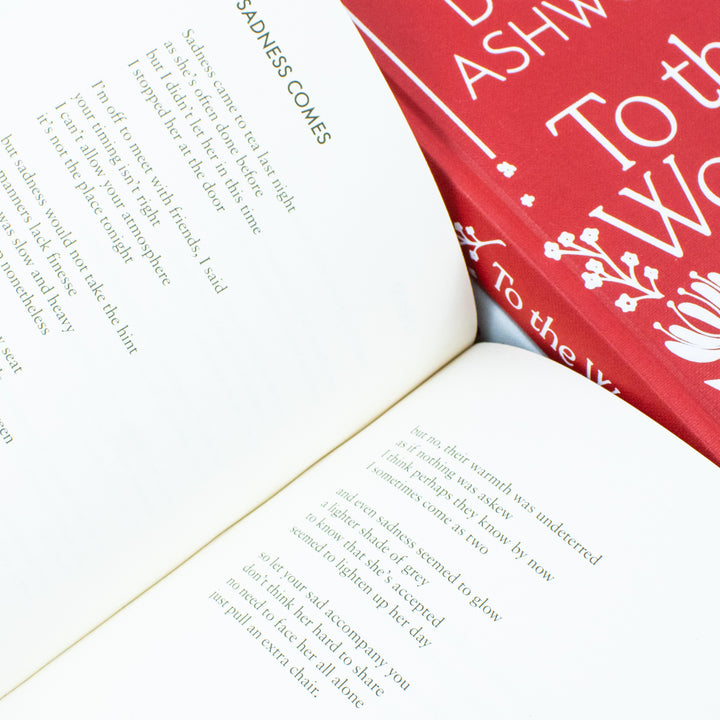 SADNESS COMES
Sadness came to tea last night
as she's often done before
but I didn't let her in this time
I stopped her at the door
I'm off to meet with friends, I said
your timing isn't right
I can't allow your atmosphere
it's not the place tonight
but sadness would not take the hint
manners lack finesse
was slow and heavy
nonetheless
seat
but no, their warmth was undeterred
as if nothing was askew
I think perhaps they know by now
I sometimes come as two
and even sadness seemed to glow
a lighter shade of grey
to know that she's accepted
seemed to lighten up her day
so let your sad accompany you
don't think her hard to share
no need to face her all alone
just pull an extra chair.
ASHW
To the
Wo
To the W